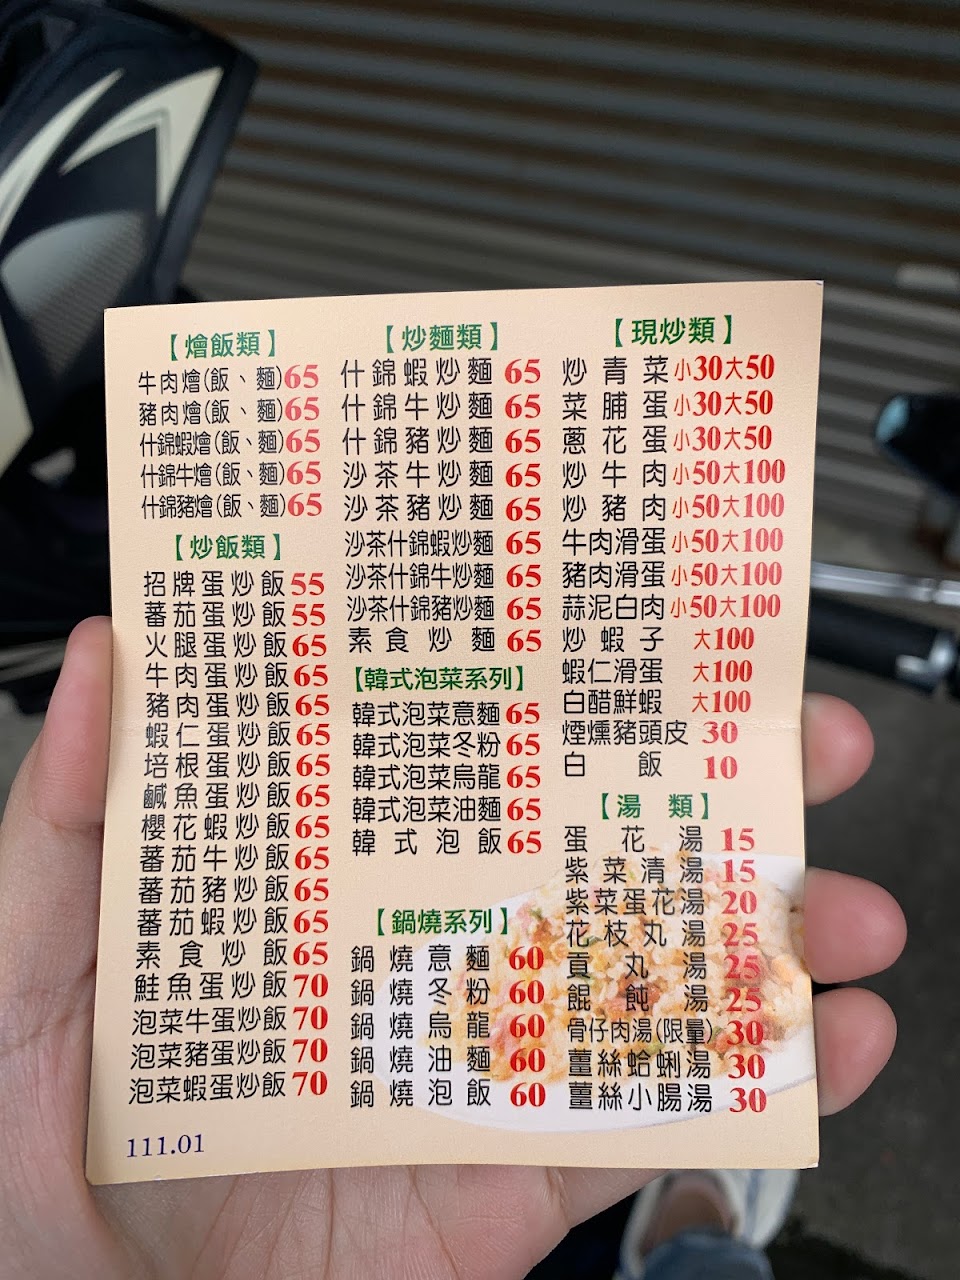 【燴飯類】
牛肉燴(飯、麵)65
豬肉燴(飯、麵)65
什錦蝦燴(飯、麵)65
什錦牛燴(飯、麵)65
什錦豬燴(飯、麵)65
【炒飯類】
招牌蛋炒飯55
蕃茄蛋炒飯55
火腿蛋炒飯65
牛肉蛋炒飯65
豬肉蛋炒飯65
蝦仁蛋炒飯65
培根蛋炒飯65
鹹魚蛋炒飯65
櫻花蝦炒飯65
蕃茄牛炒飯65
蕃茄豬炒飯65
蕃茄蝦炒飯65
素食炒飯65
鮭魚蛋炒飯70
泡菜牛蛋炒飯70
泡菜豬蛋炒飯70
泡菜蝦蛋炒飯70
111.01
【炒麵類】
什錦蝦炒麵65
什錦牛炒麵65
什錦豬炒麵65
沙茶牛炒麵65
沙茶豬炒麵65
沙茶什錦蝦炒麵65
沙茶什錦牛炒麵65
沙茶什錦豬炒麵65
素食炒麵65
【韓式泡菜系列】
韓式泡菜意麵65
韓式泡菜冬粉65
韓式泡菜烏龍65
韓式泡菜油麵65
韓式泡飯65
【鍋燒系列】
鍋燒意麵60
鍋燒冬粉60
鍋燒烏龍60
鍋燒油麵60
鍋燒泡飯60
【現炒類】
炒青菜小30大50
菜脯蛋小30大50
蔥花蛋小30大50
炒牛肉小50大100
炒豬肉小50大100
牛肉滑蛋小50大100
豬肉滑蛋小50大100
蒜泥白肉小50大100
炒蝦子 大100
蝦仁滑蛋 大100
白醋鮮蝦 大100
煙燻豬頭皮 30
白飯 10
【湯類】
蛋花湯 15
紫菜清湯 15
紫菜蛋花湯 20
花枝丸湯 25
貢丸湯 25
餛飩湯 25
骨仔肉湯(限量) 30
薑絲蛤蜊湯 30
薑絲小腸湯 30